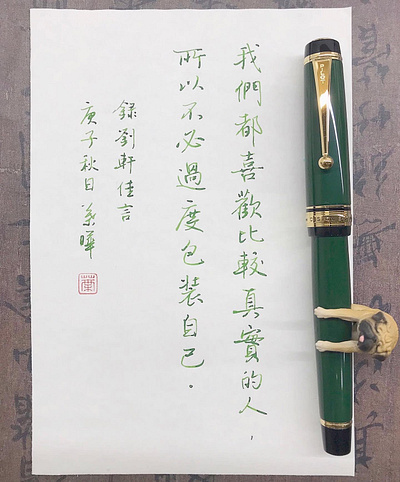 我們都喜歡比較真實的人，
所以不必過度包裝自己。
錄劉軒佳言
庚子秋日葉曄